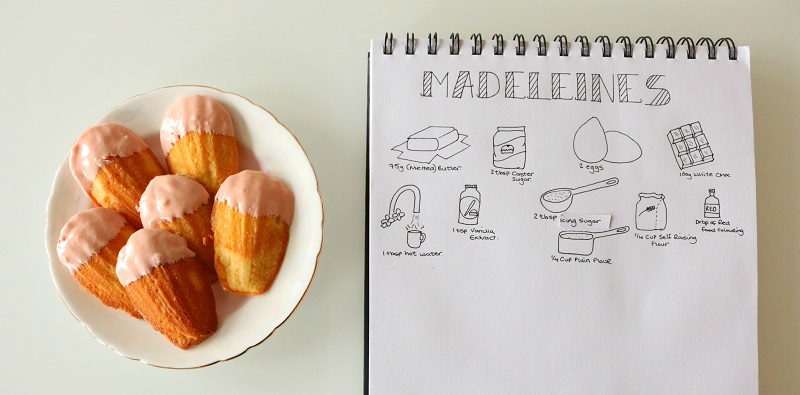 MADELEINES
75g (Melted) Butter.
2 tbsp Caster
Sugar.
2 eggs
100g White Choc
1 tbsp hot water.
1 tsp Vanilla
Extract.
2 tbsp Icing Sugar
1/4 Cup Plain Flour
1/4 Cup Self Raising
Flour
RED
Drop of Red
Food Colouring